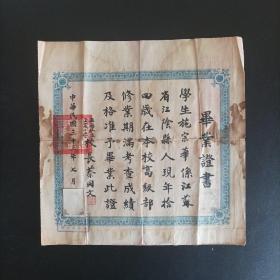 畢業證書
學生施宗華係江蘇
省江陰縣人現年拾
四歲在本校高級部
修業期滿考查成績
及格准予畢業此證
校長蔡同文
中華民國三十年七月